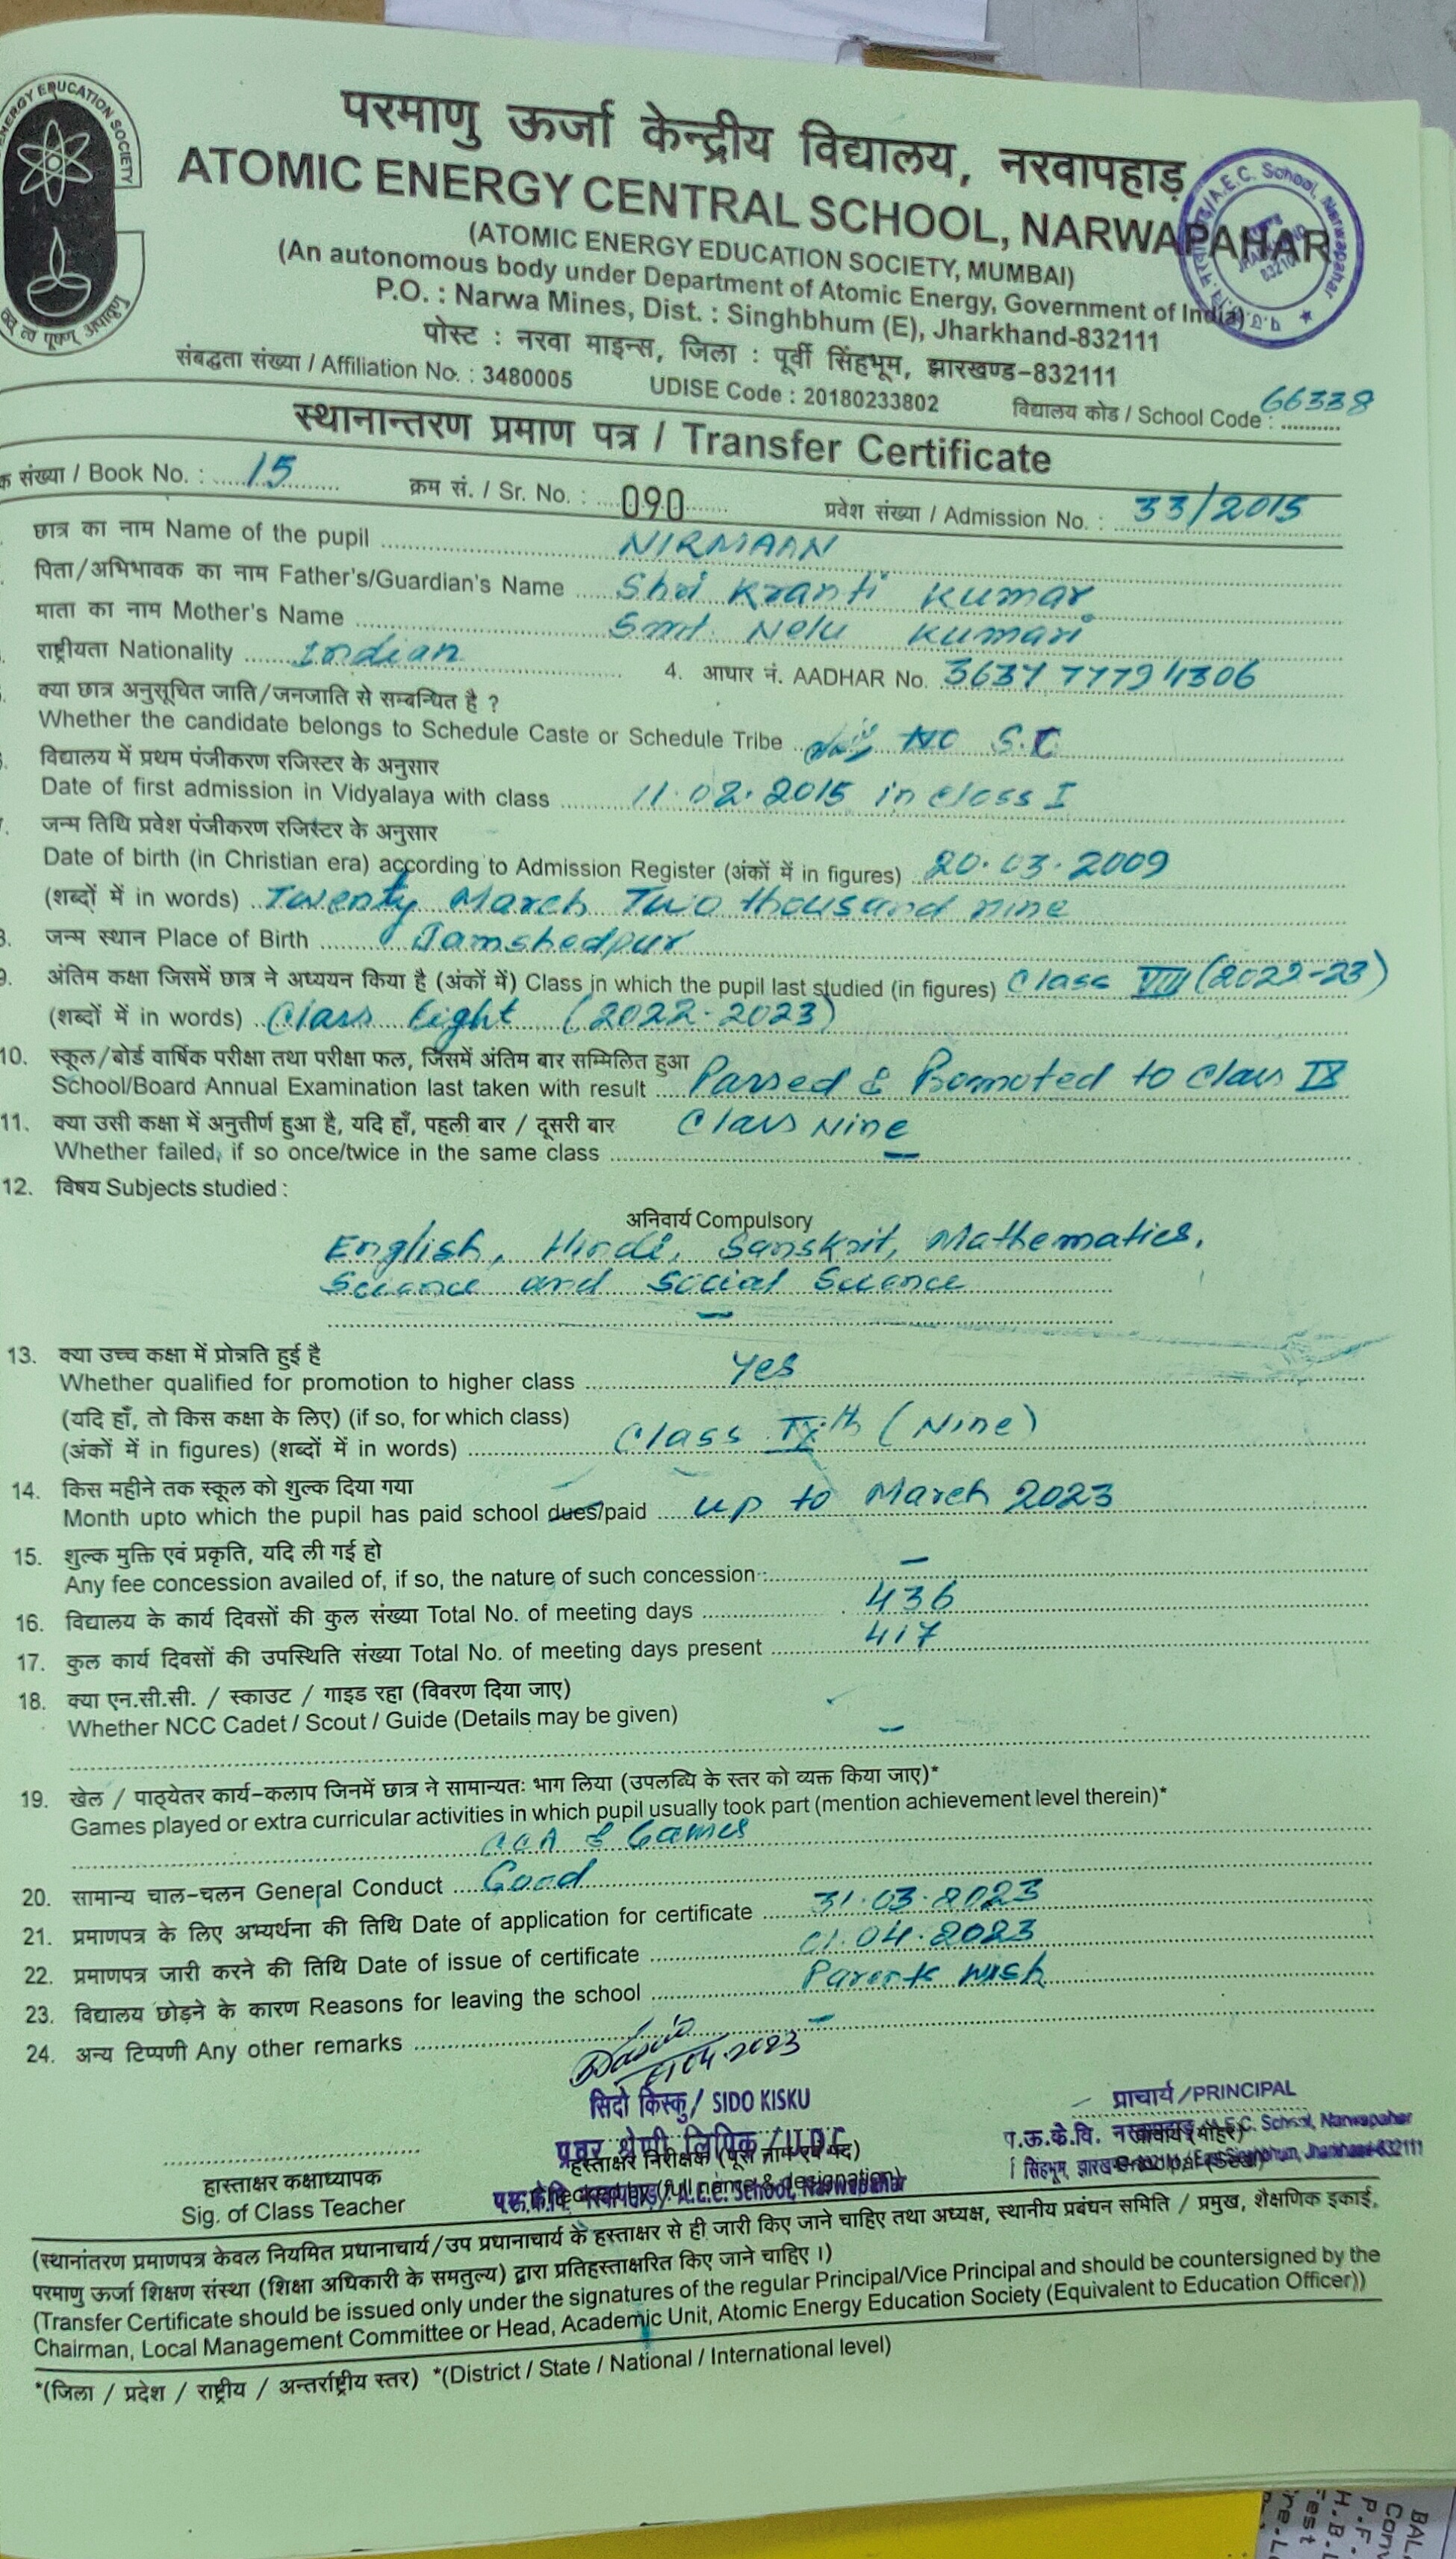 ENERGY EDUCATION SOCIETY
परमाणु ऊर्जा केन्द्रीय विद्यालय, नरवापहाड़
ATOMIC ENERGY CENTRAL SCHOOL, NARWAPAHAR
(ATOMIC ENERGY EDUCATION SOCIETY, MUMBAI)
(An autonomous body under Department of Atomic Energy, Government of India)
P.O. : Narwa Mines, Dist. : Singhbhum (E), Jharkhand-832111
पोस्ट : नरवा माइन्स, जिला : पूर्वी सिंहभूम, झारखण्ड-832111
संबद्धता संख्या / Affiliation No. : 3480005 UDISE Code : 20180233802 विद्यालय कोड / School Code : 66338
A.E.C. School, Narwapahar
स्थानान्तरण प्रमाण पत्र / Transfer Certificate
क संख्या / Book No. : 15 क्रम सं. / Sr. No. : 090 प्रवेश संख्या / Admission No. : 33/2015
छात्र का नाम Name of the pupil NIRMAAN
पिता/अभिभावक का नाम Father's/Guardian's Name Shri Kranti Kumar
माता का नाम Mother's Name Smt. Nelu Kumari
राष्ट्रीयता Nationality Indian 4. आधार नं. AADHAR No. 3637 7779 4306
क्या छात्र अनुसूचित जाति/जनजाति से सम्बन्धित है ?
Whether the candidate belongs to Schedule Caste or Schedule Tribe NO S.C
विद्यालय में प्रथम पंजीकरण रजिस्टर के अनुसार
Date of first admission in Vidyalaya with class 11.02.2015 in class I
जन्म तिथि प्रवेश पंजीकरण रजिस्टर के अनुसार
Date of birth (in Christian era) according to Admission Register (अंकों में in figures) 20.03.2009
(शब्दों में in words) Twenty March Two thousand nine
जन्म स्थान Place of Birth Jamshedpur
9. अंतिम कक्षा जिसमें छात्र ने अध्ययन किया है (अंकों में) Class in which the pupil last studied (in figures) Class VIII (2022-23)
(शब्दों में in words) Class Eight (2022-2023)
10. स्कूल/बोर्ड वार्षिक परीक्षा तथा परीक्षा फल, जिसमें अंतिम बार सम्मिलित हुआ
School/Board Annual Examination last taken with result Passed & Promoted to Class IX
11. क्या उसी कक्षा में अनुत्तीर्ण हुआ है, यदि हाँ, पहली बार / दूसरी बार Class Nine
Whether failed, if so once/twice in the same class –
12. विषय Subjects studied :
अनिवार्य Compulsory
English, Hindi, Sanskrit, Mathematics,
Science and Social Science
–
13. क्या उच्च कक्षा में प्रोन्नति हुई है
Whether qualified for promotion to higher class Yes
(यदि हाँ, तो किस कक्षा के लिए) (if so, for which class)
(अंकों में in figures) (शब्दों में in words) Class IXth (Nine)
14. किस महीने तक स्कूल को शुल्क दिया गया
Month upto which the pupil has paid school dues/paid up to March 2023
15. शुल्क मुक्ति एवं प्रकृति, यदि ली गई हो
Any fee concession availed of, if so, the nature of such concession : –
16. विद्यालय के कार्य दिवसों की कुल संख्या Total No. of meeting days 436
17. कुल कार्य दिवसों की उपस्थिति संख्या Total No. of meeting days present 417
18. क्या एन.सी.सी. / स्काउट / गाइड रहा (विवरण दिया जाए)
Whether NCC Cadet / Scout / Guide (Details may be given) –
19. खेल / पाठ्येतर कार्य-कलाप जिनमें छात्र ने सामान्यतः भाग लिया (उपलब्धि के स्तर को व्यक्त किया जाए)*
Games played or extra curricular activities in which pupil usually took part (mention achievement level therein)*
CCA & Games
20. सामान्य चाल-चलन General Conduct Good
21. प्रमाणपत्र के लिए अभ्यर्थना की तिथि Date of application for certificate 31.03.2023
22. प्रमाणपत्र जारी करने की तिथि Date of issue of certificate 01.04.2023
23. विद्यालय छोड़ने के कारण Reasons for leaving the school Parents wish
24. अन्य टिप्पणी Any other remarks –
01.04.2023
सिदो किस्कु / SIDO KISKU
प्रवर श्रेणी लिपिक / U.D.C
प्राचार्य /PRINCIPAL
प.ऊ.के.वि. नरवापहाड़/A.E.C. School, Narwapahar
हास्ताक्षर कक्षाध्यापक
Sig. of Class Teacher
हस्ताक्षर निरीक्षक (पूरा नाम एवं पद)
(full name & designation)
A.E.C. School, Narwapahar
(स्थानांतरण प्रमाणपत्र केवल नियमित प्रधानाचार्य/उप प्रधानाचार्य के हस्ताक्षर से ही जारी किए जाने चाहिए तथा अध्यक्ष, स्थानीय प्रबंधन समिति / प्रमुख, शैक्षणिक इकाई,
परमाणु ऊर्जा शिक्षण संस्था (शिक्षा अधिकारी के समतुल्य) द्वारा प्रतिहस्ताक्षरित किए जाने चाहिए ।)
(Transfer Certificate should be issued only under the signatures of the regular Principal/Vice Principal and should be countersigned by the
Chairman, Local Management Committee or Head, Academic Unit, Atomic Energy Education Society (Equivalent to Education Officer))
*(जिला / प्रदेश / राष्ट्रीय / अन्तर्राष्ट्रीय स्तर) *(District / State / National / International level)